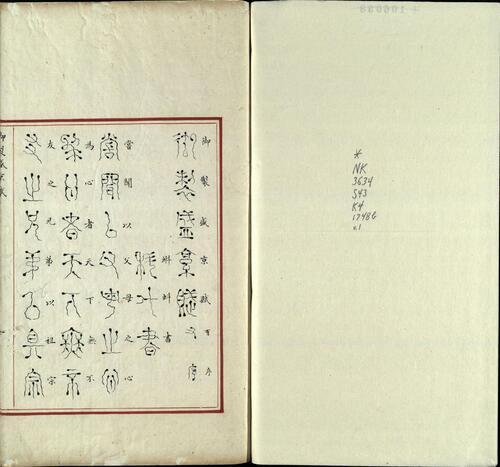 御製盛京賦有序
蝌蚪書
嘗聞以父母之心
為心者天下無不
友之兄弟以祖宗
御製盛京賦
*
NK
3634
S43
K4
1748b
v.1